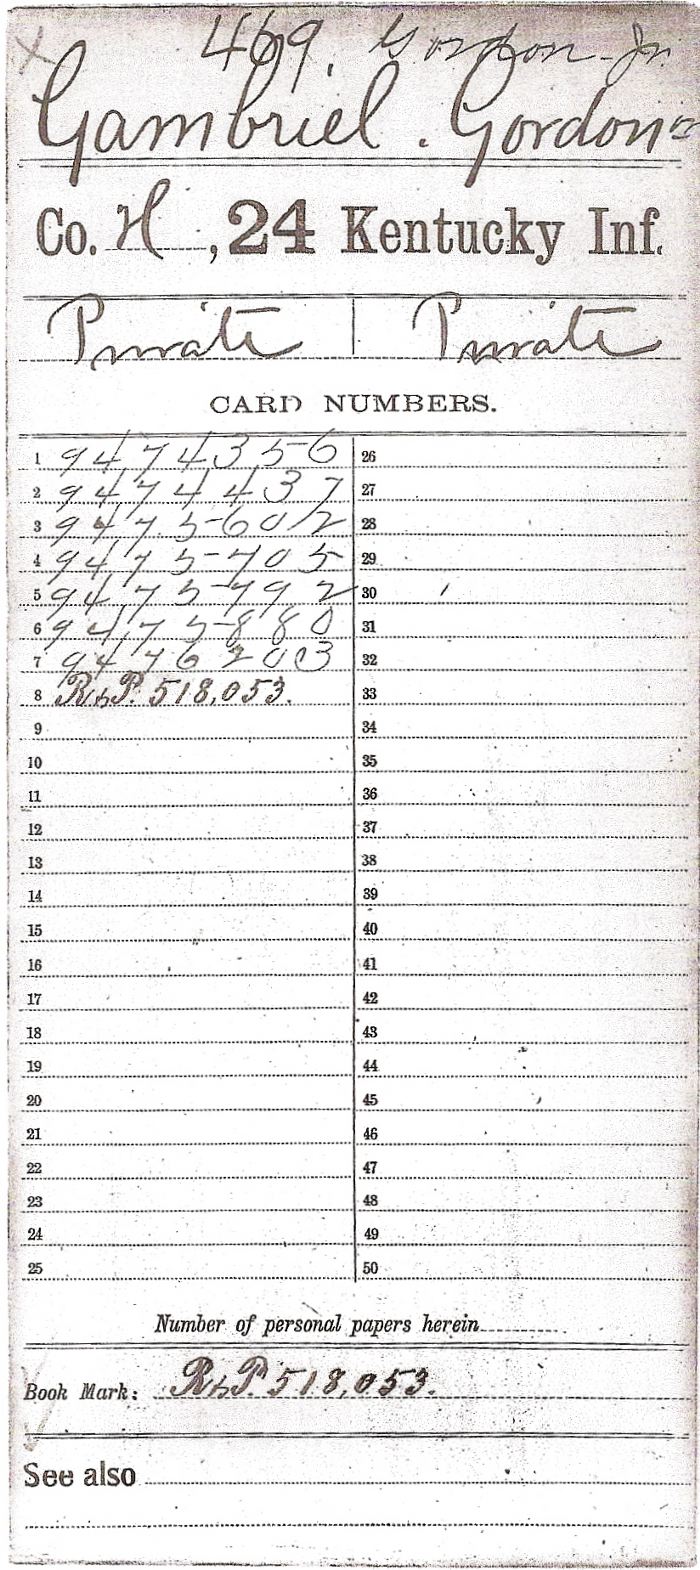 469. Gordon Jr.
Gambriel . Gordon
Co. H , 24 Kentucky Inf.
Private Private
CARD NUMBERS.
1 9474356 26
2 9474437 27
3 9475602 28
4 9475705 29
5 9475792 30
6 9475880 31
7 9476203 32
8 R&P. 518,053. 33
9 34
10 35
11 36
12 37
13 38
14 39
15 40
16 41
17 42
18 43
19 44
20 45
21 46
22 47
23 48
24 49
25 50
Number of personal papers herein
Book Mark: R&P. 518,053.
See also